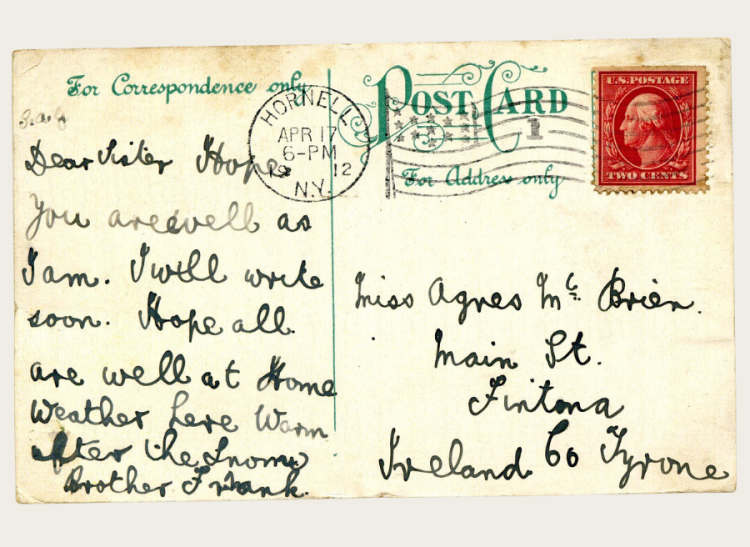 For Correspondence only
POST CARD
For Address only
U.S. POSTAGE
TWO CENTS
HORNELL
APR 17
6-PM
12
N.Y.
1
Dear Sister Hope
You are well as
I am. I will write
soon. Hope all
are well at Home
Weather here Warm
after the Snow
Brother Frank.
Miss Agnes Mc Brien.
Main St.
Fintona
Ireland Co Tyrone